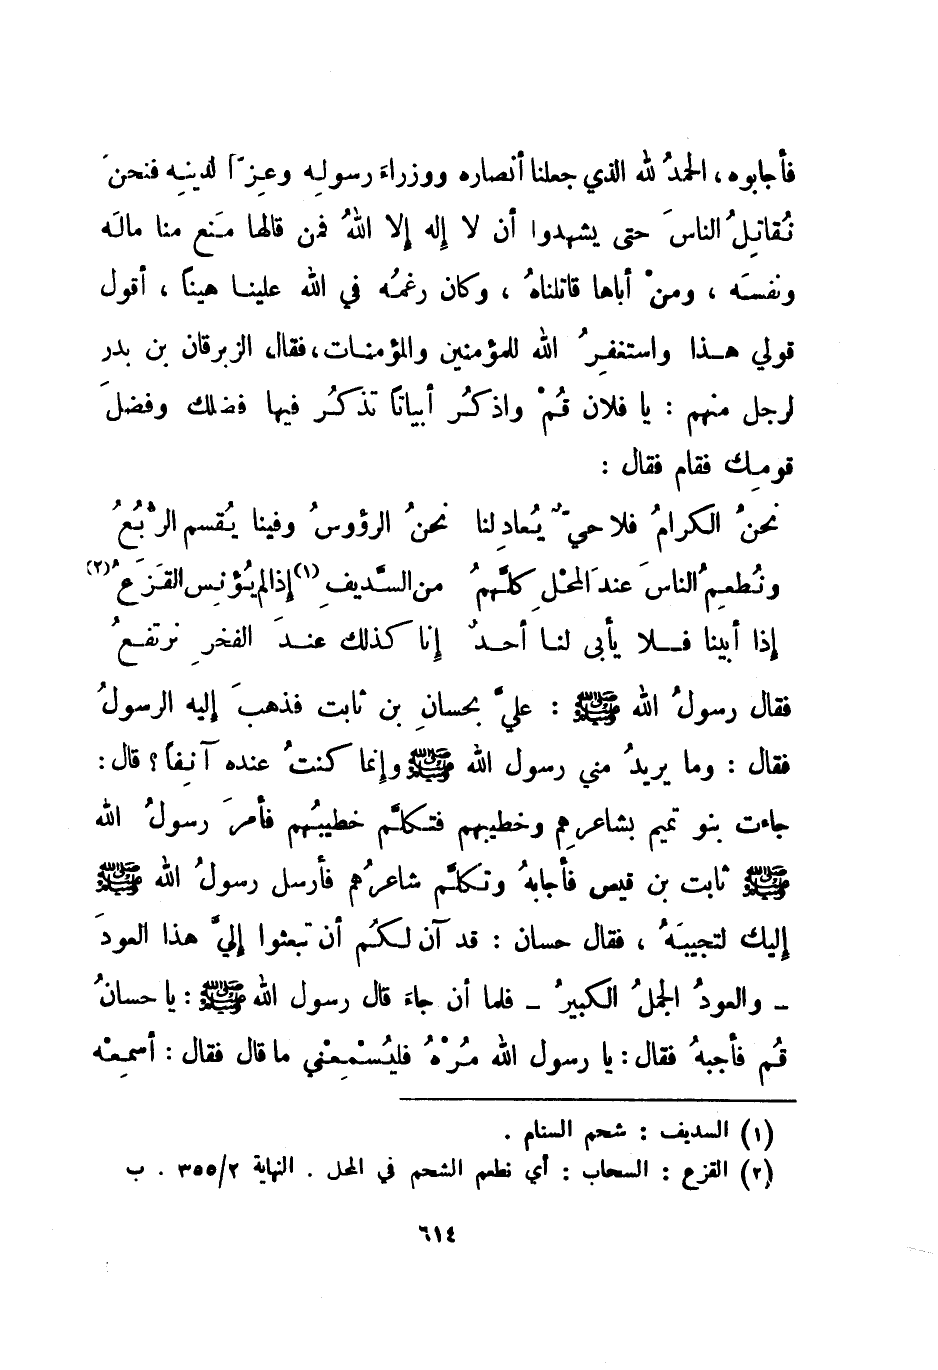 فأجابوه، الحمدُ لله الذي جعلنا أنصاره ووزراءَ رسولِه وعِزّاً لدينِه فنحنَ
نُقاتِلُ الناسَ حتى يشهدوا أن لا إله إلا اللهُ فمن قالها مَنع منا مالَه
ونفسَه ، ومنْ أباها قاتلناهُ ، وكان رغمُه في الله علينا هيناً ، أقول
قولي هذا واستغفِرُ الله للمؤمنين والمؤمنات، فقال الزبرقان بن بدر
لرجل منهم : يا فلان قُمْ واذكُر أبياتاً تذكُر فيها فضلك وفضلَ
قومِك فقام فقال :
نحنُ الكرامُ فلا حيّ يُعادِلنا نحنُ الرؤوسُ وفينا يُقسم الرُّبُعُ
ونُطعِمُ الناسَ عندَ المحْلِ كلَّهمُ من السَّديفِ (١) إذا لم يُؤنِس القَزَعُ (٢)
إذا أبينا فلا يأبى لنا أحدٌ إنا كذلك عندَ الفخرِ نرتفعُ
فقال رسولُ الله ﷺ : عليَّ بحسانِ بن ثابت فذهبَ إليه الرسولُ
فقال : وما يريدُ مني رسول الله ﷺ وإنما كنتُ عنده آنِفاً ؟ قال :
جاءت بنو تميم بشاعرِهم وخطيبهم فتكلَّم خطيبُهم فأمرَ رسولُ الله
ﷺ ثابت بن قيس فأجابهُ وتكلَّم شاعرُهم فأرسل رسولُ الله ﷺ
إليك لتجيبَهُ ، فقال حسان : قد آن لكُم أن تبعثوا إليَّ هذا العودَ
ـ والعودُ الجملُ الكبيرُ ـ فلما أن جاءَ قال رسول الله ﷺ : يا حسانُ
قُم فأجبهُ فقال : يا رسول الله مُرْهُ فليُسْمِعْني ما قال فقال : أسمِعْه
(١) السديف : شحم السنام .
(٢) القزع : السحاب : أي نطعم الشحم في المحل . النهاية ٣٥٥/٢ . ب
٦١٤